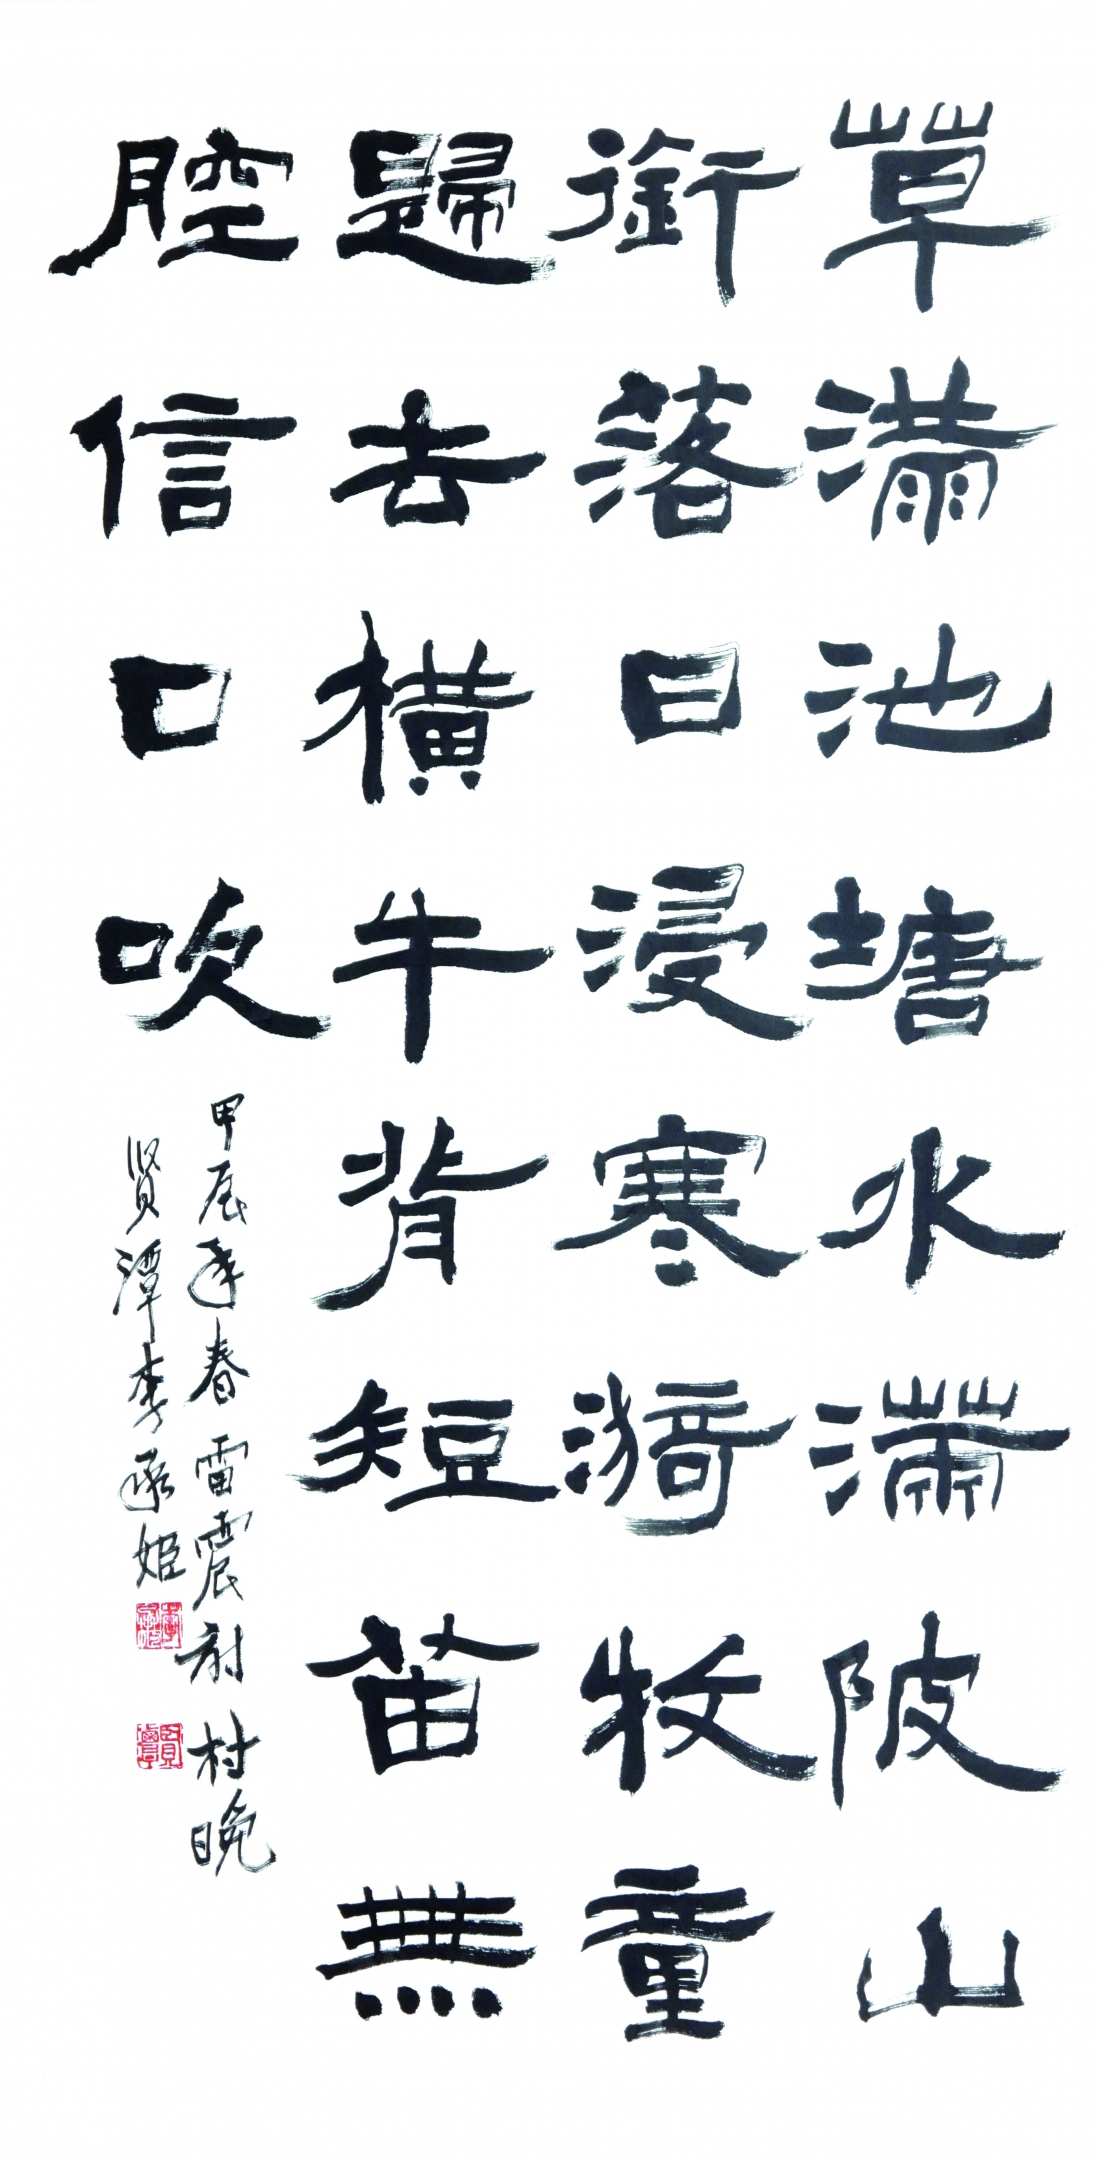 草滿池塘水滿陂山
銜落日浸寒漪牧童
歸去橫牛背短笛無
腔信口吹
甲辰年春雷震詩村晚
贤潭李承姬